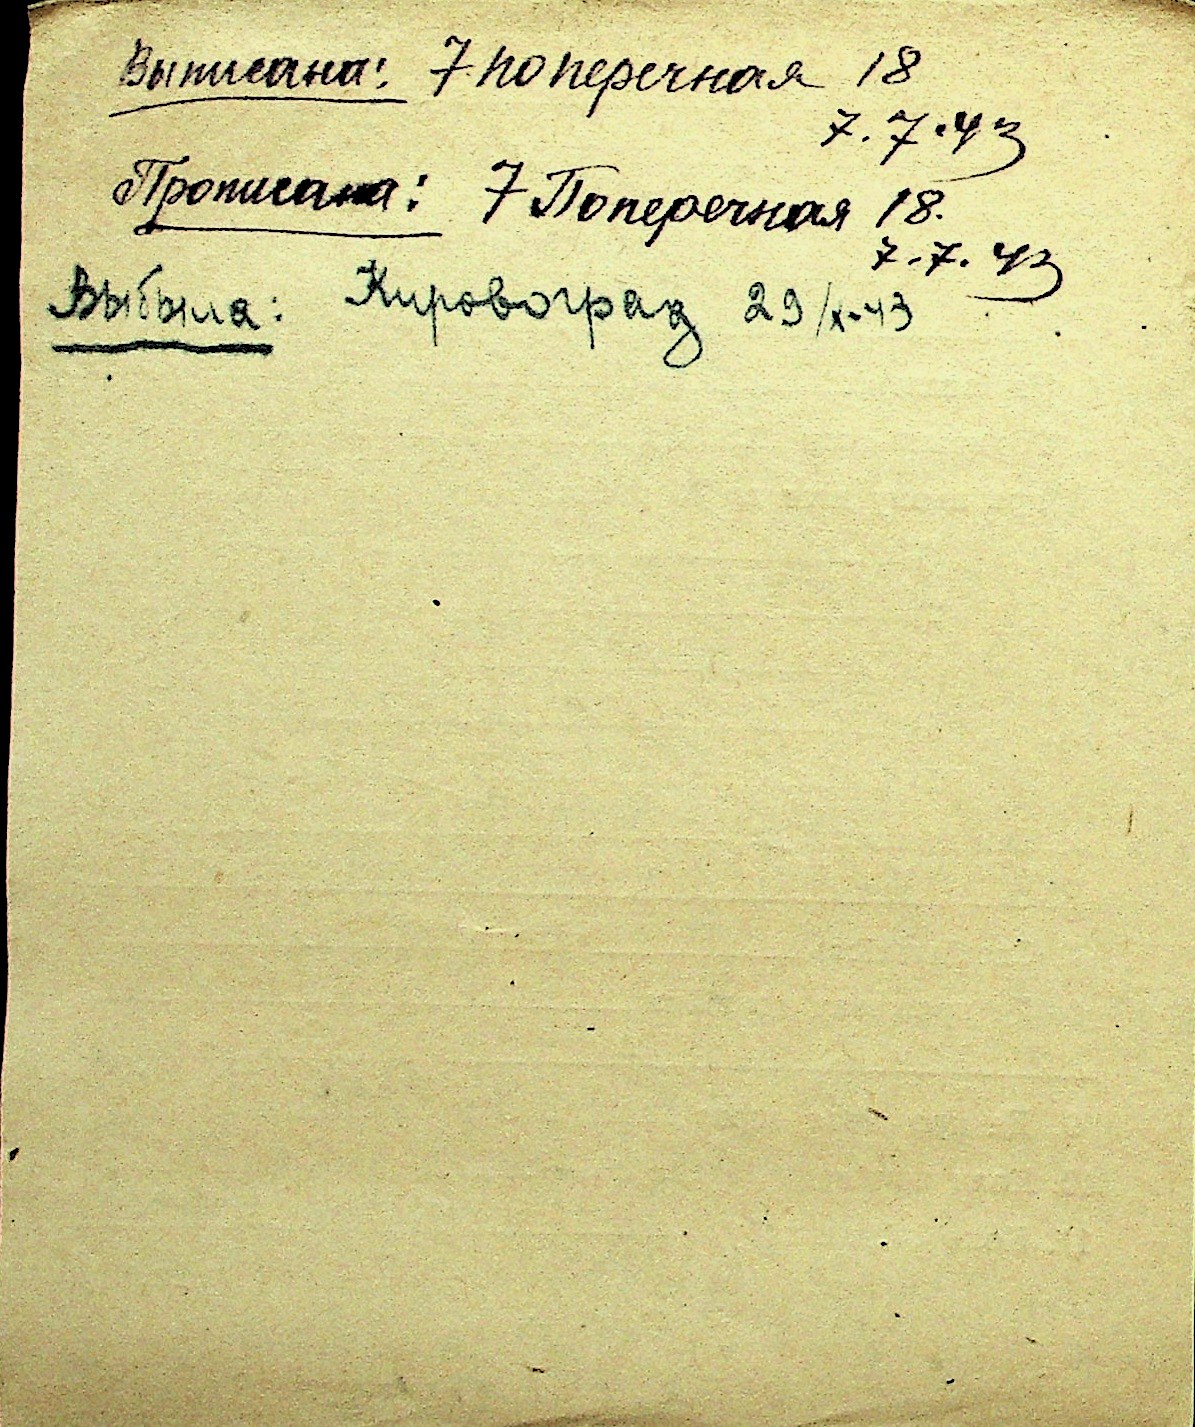 Выписана: 7 поперечная 18
7.7.43
Прописана: 7 Поперечная 18.
7.7.43
Выбыла: Кировоград 29/X-43